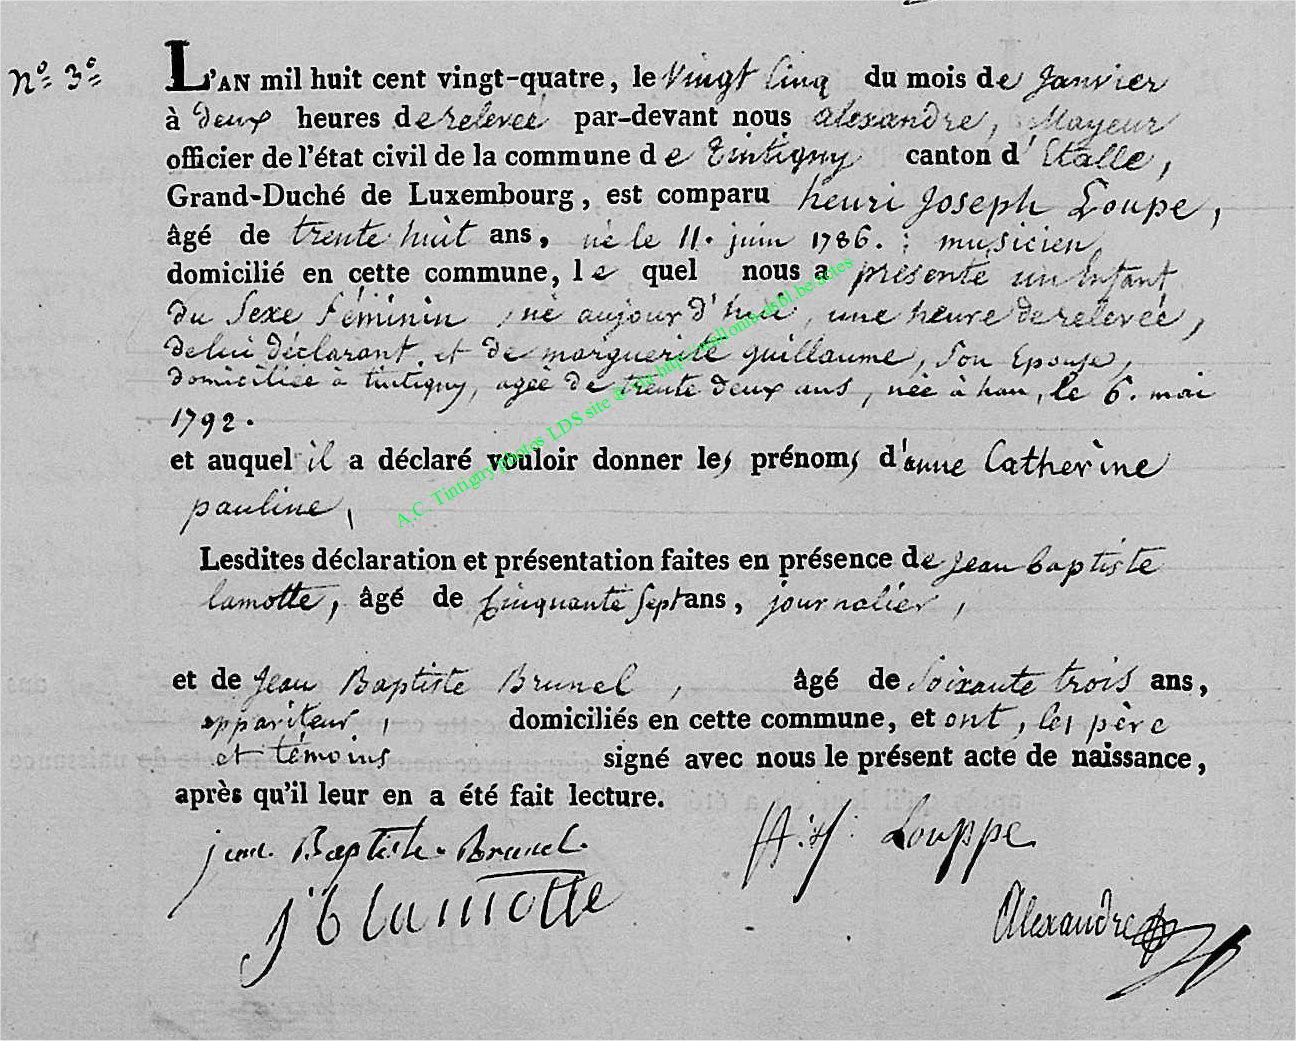 N.º 3.º
L'AN mil huit cent vingt-quatre, le Vingt Cinq du mois de Janvier
à deux heures de relevée par-devant nous alexandre, Mayeur
officier de l'état civil de la commune de Tintigny canton d'Etalle,
Grand-Duché de Luxembourg, est comparu henri Joseph Loupe,
âgé de trente huit ans, né le 11. juin 1786. ; musicien,
domicilié en cette commune, le quel nous a présenté un Enfant
du Sexe féminin, né aujourd'hui, une heure de relevée,
de lui déclarant, et de marguerite guillaume, Son Epouse,
domiciliée à tintigny, agée de trente deux ans, née à han, le 6. mai
1792.
et auquel il a déclaré vouloir donner les prénoms d'anne Catherine
pauline,
Lesdites déclaration et présentation faites en présence de Jean baptiste
lamotte, âgé de Cinquante Sept ans, journalier,
et de Jean Baptiste Brunel, âgé de Soixante trois ans,
appariteur, domiciliés en cette commune, et ont, les père
et témoins signé avec nous le présent acte de naissance,
après qu'il leur en a été fait lecture.
jean. Baptiste. Brunel.
H:J: Louppe
j b lamotte
Alexandre
A.C. Tintigny photos LDS site © via http://wallonia-asbl.be.actes